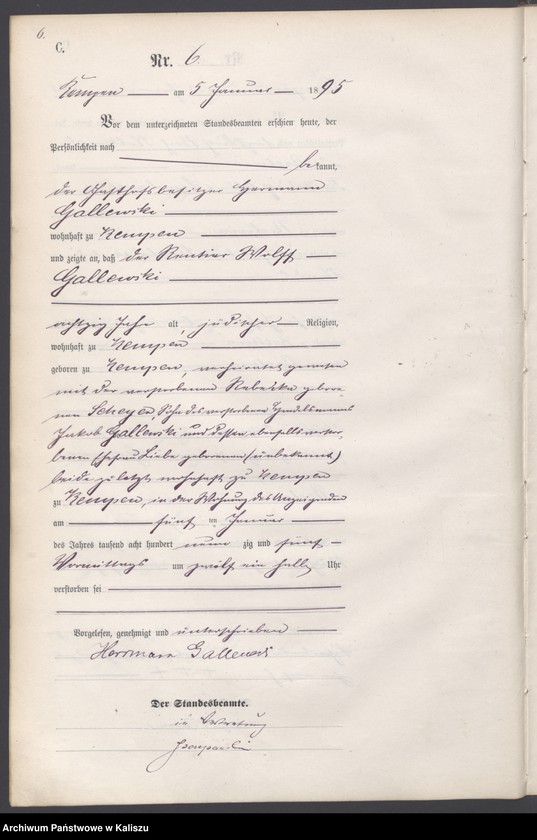 6.
C.
Nr. 6.
Kempen am 5 Januar 1895
Vor dem unterzeichneten Standesbeamten erschien heute, der
Persönlichkeit nach
bekannt,
der Gasthofsbesitzer Hermann
Gallewski
wohnhaft zu Kempen
und zeigte an, daß der Rentier Wolff
Gallewski
achtzig Jahr alt, jüdischer Religion,
wohnhaft zu Kempen
geboren zu Kempen, verheirathet gewesen
mit der verstorbenen Rebekka gebore-
nen Scheyer, Sohn des verstorbenen Handelsmanns
Jakob Gallewski und dessen ebenfalls verstor-
benen Ehefrau Liebe geborenen (unbekannt)
beide zuletzt wohnhaft zu Kempen
zu Kempen, in der Wohnung des Anzeigenden
am fünf ten Januar
des Jahres tausend acht hundert neun zig und fünf
Vormittags um zwölf ein halb Uhr
verstorben sei
Vorgelesen, genehmigt und unterschrieben
Herrmann Gallewski
Der Standesbeamte.
in Vertretung
Archiwum Państwowe w Kaliszu